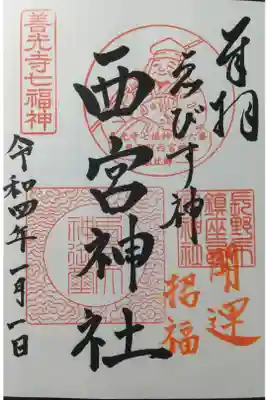 奉拝
ゑびす神
西宮神社
開運
招福
善光寺七福神
長野市
鎮座
令和四年一月一日